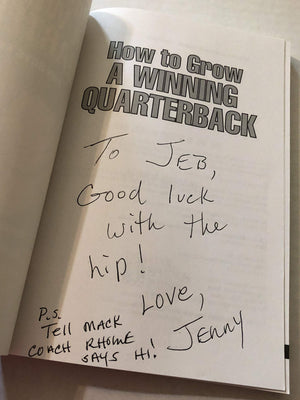 How to Grow
A WINNING
QUARTERBACK
To JEB,
Good luck
with the
hip!
LOVE,
JENNY
P.S.
TELL MACK
COACH RHOME
SAYS HI!